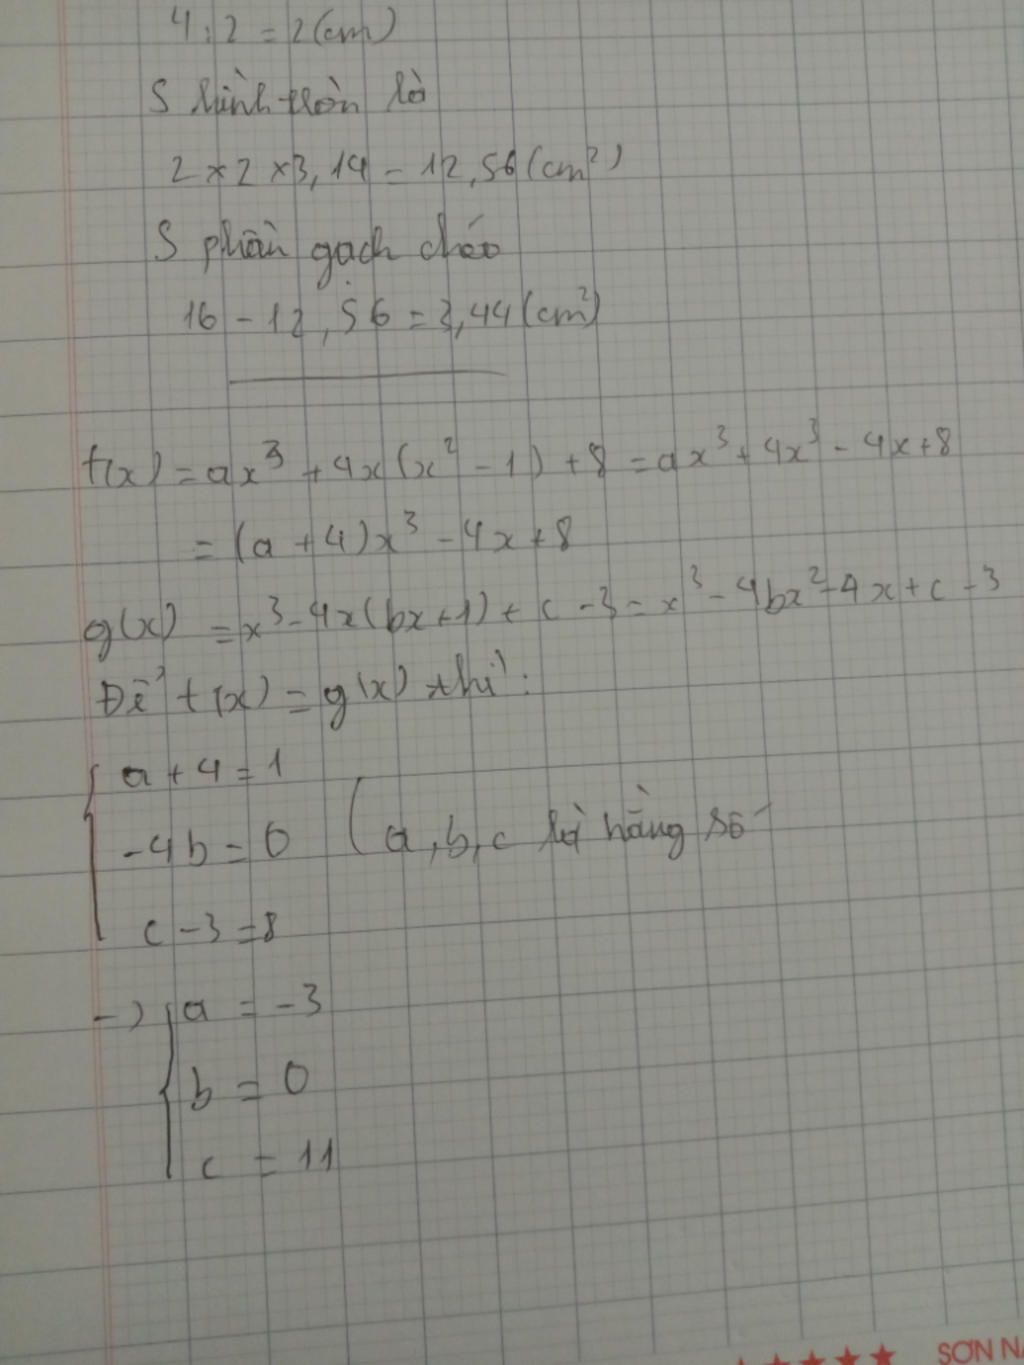 4 : 2 = 2 (cm)
S hình tròn là
2 x 2 x 3,14 = 12,56 (cm²)
S phần gạch chéo
16 - 12,56 = 3,44 (cm²)
f(x) = ax³ + 4x(x² - 1) + 8 = ax³ + 4x³ - 4x + 8
= (a + 4)x³ - 4x + 8
g(x) = x³ - 4x(bx + 1) + c - 3 = x³ - 4bx² - 4x + c - 3
Để f(x) = g(x) thì :
a + 4 = 1
-4b = 0 (a, b, c là hằng số
c - 3 = 8
-> a = -3
b = 0
c = 11
★★★★ SƠN NA